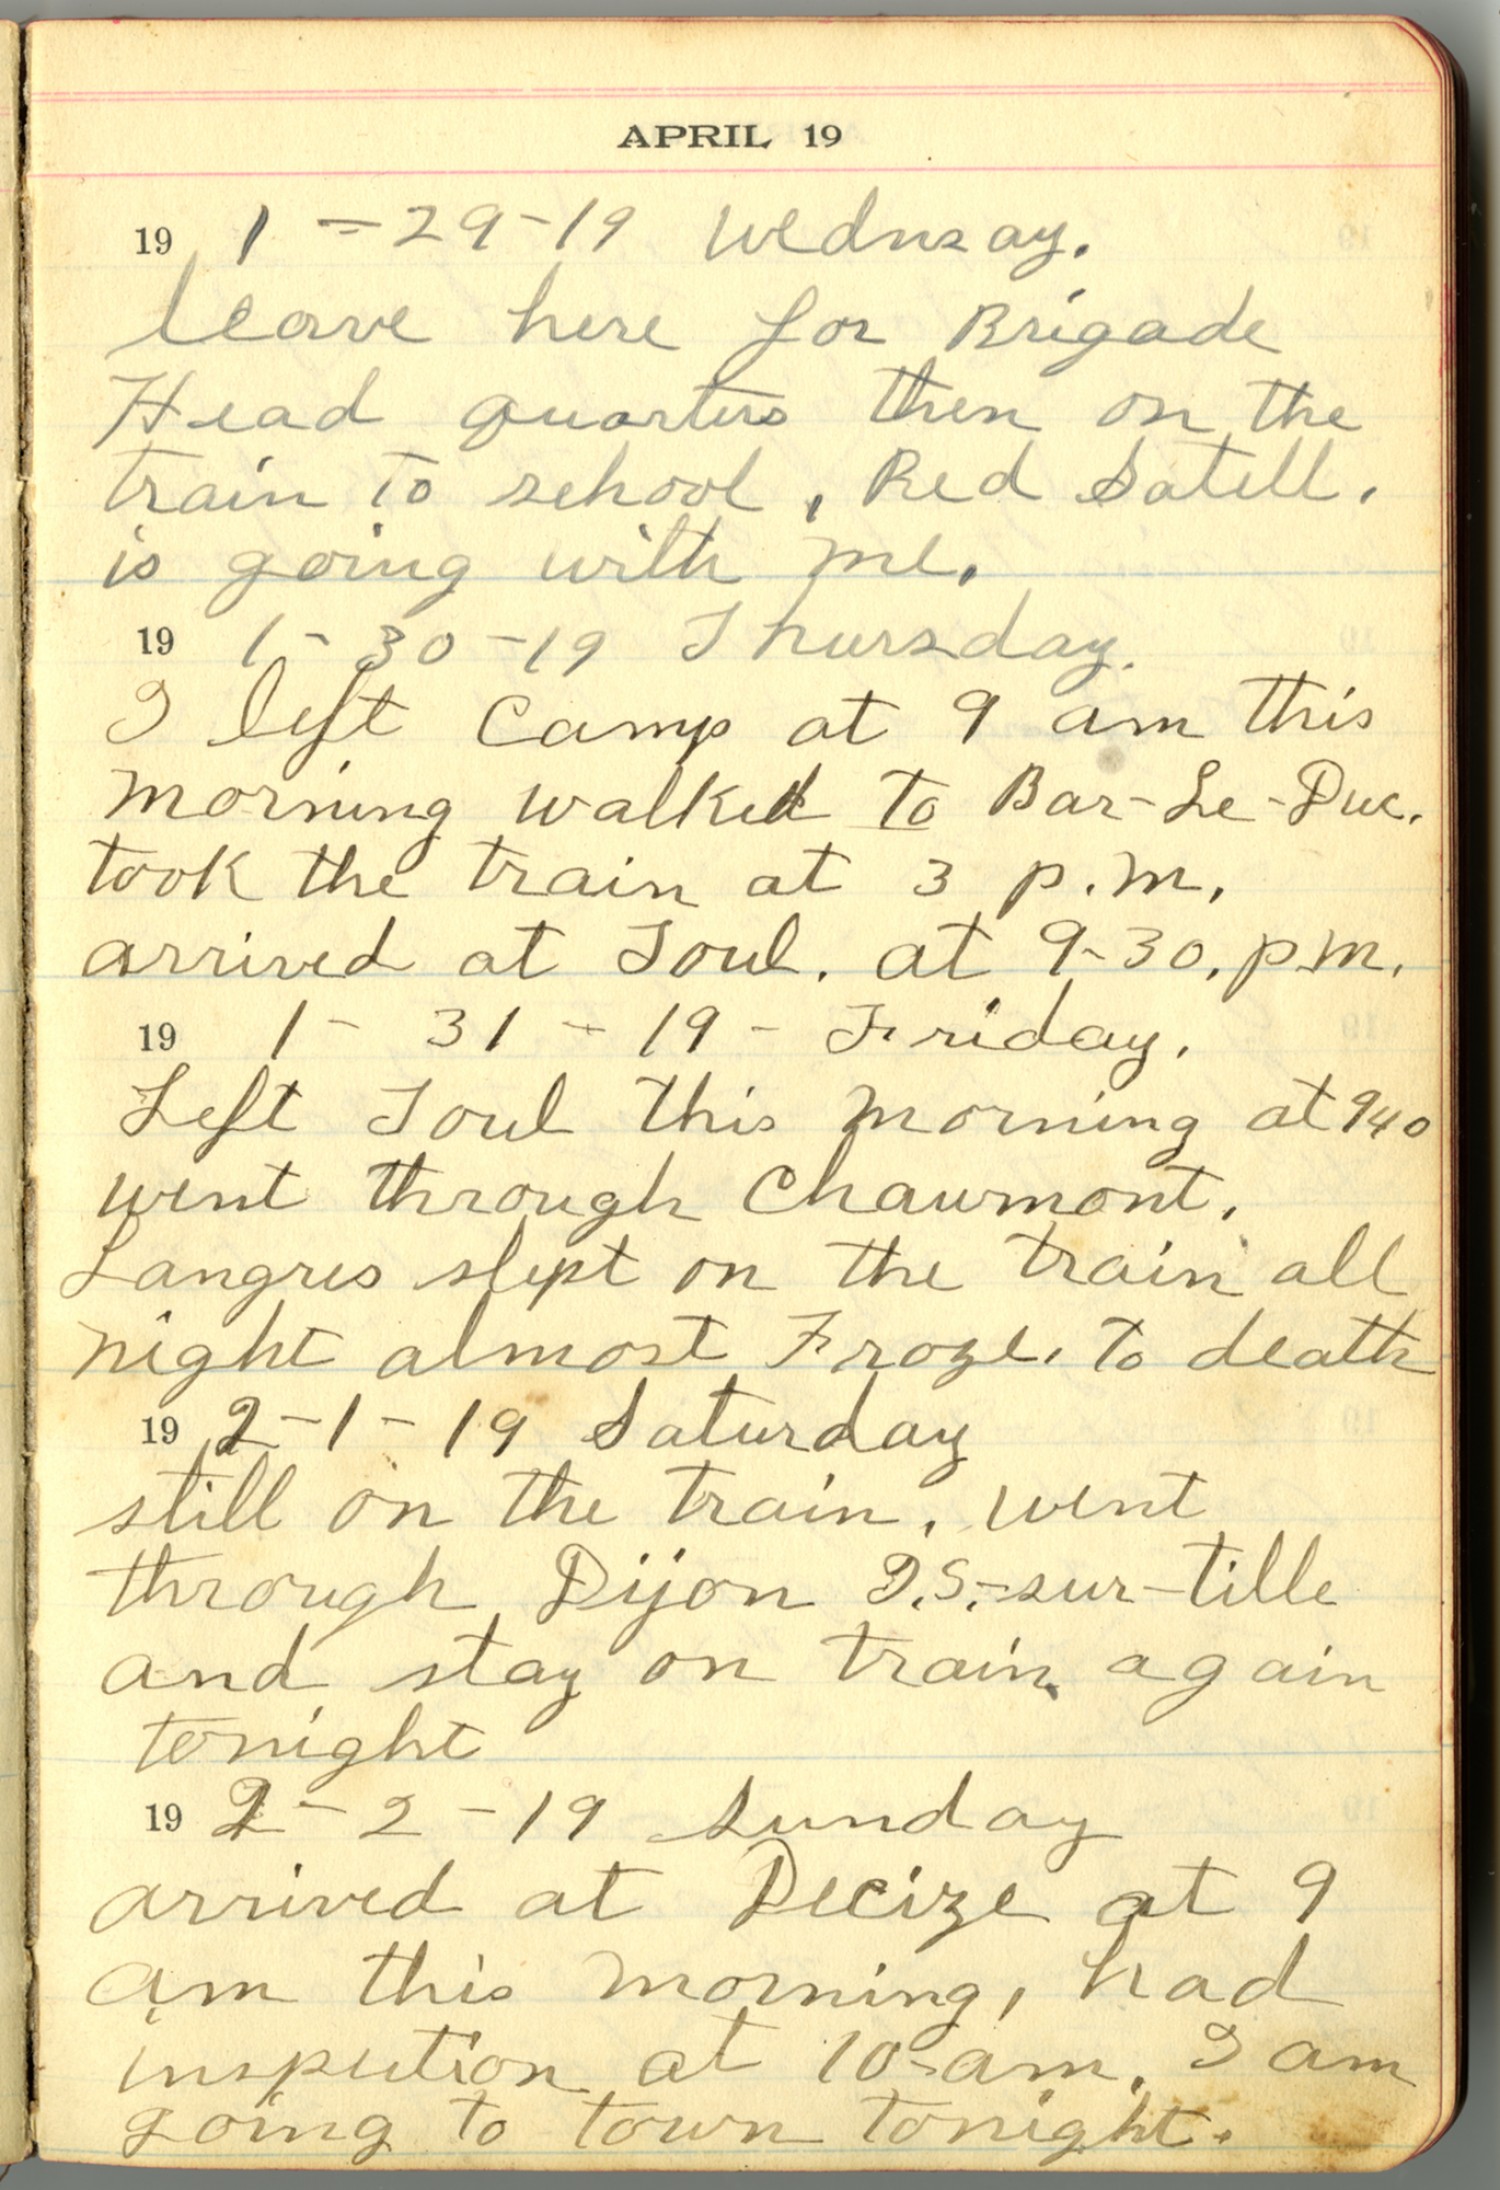 APRIL 19
19 1-29-19 Wednsay.
leave here for Brigade
Head quarters then on the
train to school, Red Satell.
is going with me.
19 1-30-19 Thursday.
I left Camp at 9 am this
morning walked to Bar-Le-Duc.
took the train at 3 p.m.
arrived at Toul. at 9-30. p.m.
19 1-31-19- Friday.
Left Toul this morning at 940
went through Chaumont.
Langres slept on the train all
night almost Froze. to death
19 2-1-19 Saturday
still on the train. went
through Dijon I.S.-sur-tille
and stay on train again
tonight
19 2-2-19 Sunday
arrived at Decize at 9
am this morning, had
inspection at 10-am. I am
going to town tonight.